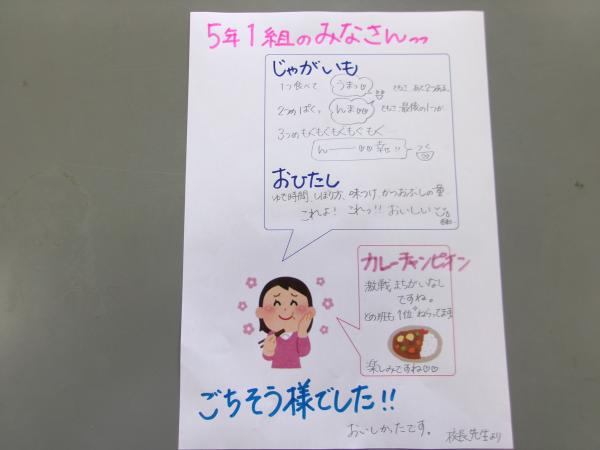 5年1組のみなさんへ
じゃがいも
1つ食べて うまっ♡
2つめ ぱくっ んま♡♡
3つめ もぐもぐもぐもぐもぐ
んーー♡♡幸せ!!
おひたし
ゆで時間、しぼり方、味つけ、かつおぶしの量
これよ! これっ!! おいしい
カレーチャンピオン
激戦まちがいなし
ですね。
どの班も1位ねらってます
楽しみですね♡♡
ごちそう様でした!!
おいしかったです。
校長先生より